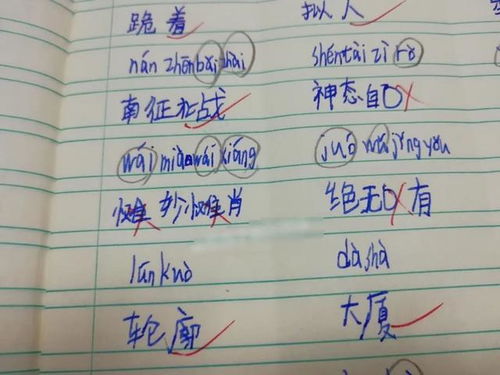 跪着 拟人
nán zhēn běi zhài shéntài zì rò
南征北战 神态自
wái miào wái xiāng juó wú jǐng yǒu
惟妙惟肖 绝无 有
lún kuò dà shà
轮廓 大厦